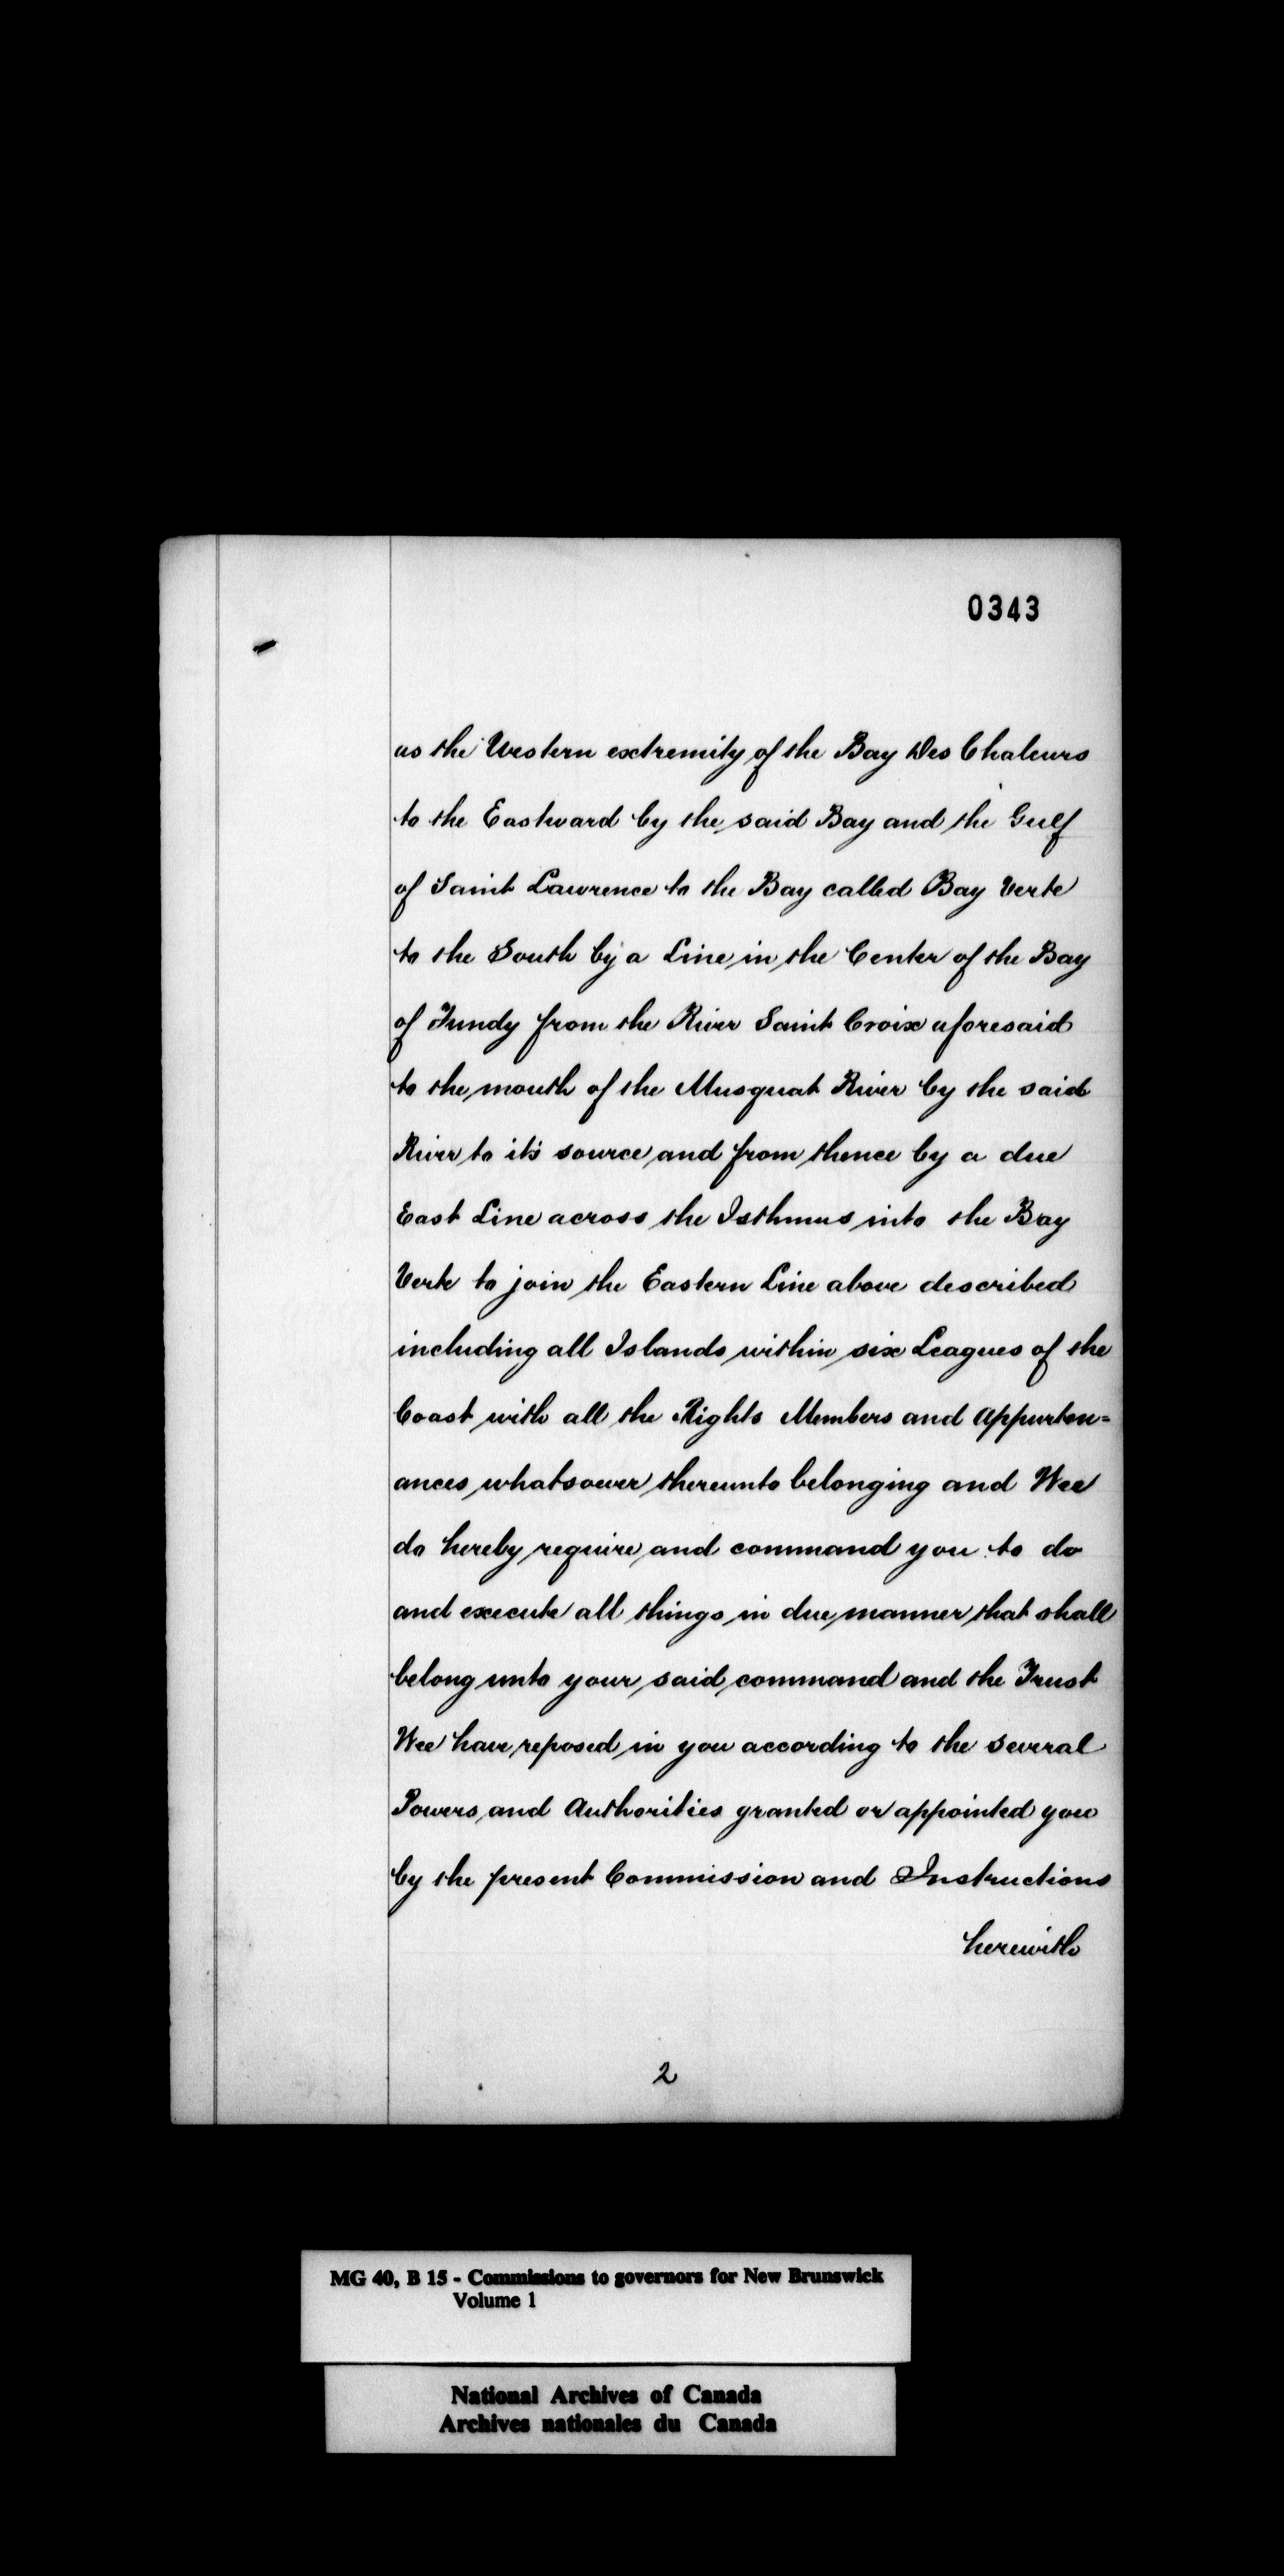 0343
as the Western extremity of the Bay Des Chaleurs
to the Eastward by the said Bay and the Gulf
of Saint Lawrence to the Bay called Bay Verte
to the South by a Line in the Center of the Bay
of Fundy from the River Saint Croix aforesaid
to the mouth of the Musquat River by the said
River to it's source and from thence by a due
East Line across the Isthmus into the Bay
Verte to join the Eastern Line above described
including all Islands within six Leagues of the
Coast with all the Rights Members and Appurten=
ances whatsoever thereunto belonging and Wee
do hereby require and command you to do
and execute all things in due manner that shall
belong unto your said command and the Trust
Wee have reposed in you according to the several
Powers and Authorities granted or appointed you
by the present Commission and Instructions
herewith
2
MG 40, B 15 - Commissions to governors for New Brunswick
Volume 1
National Archives of Canada
Archives nationales du Canada